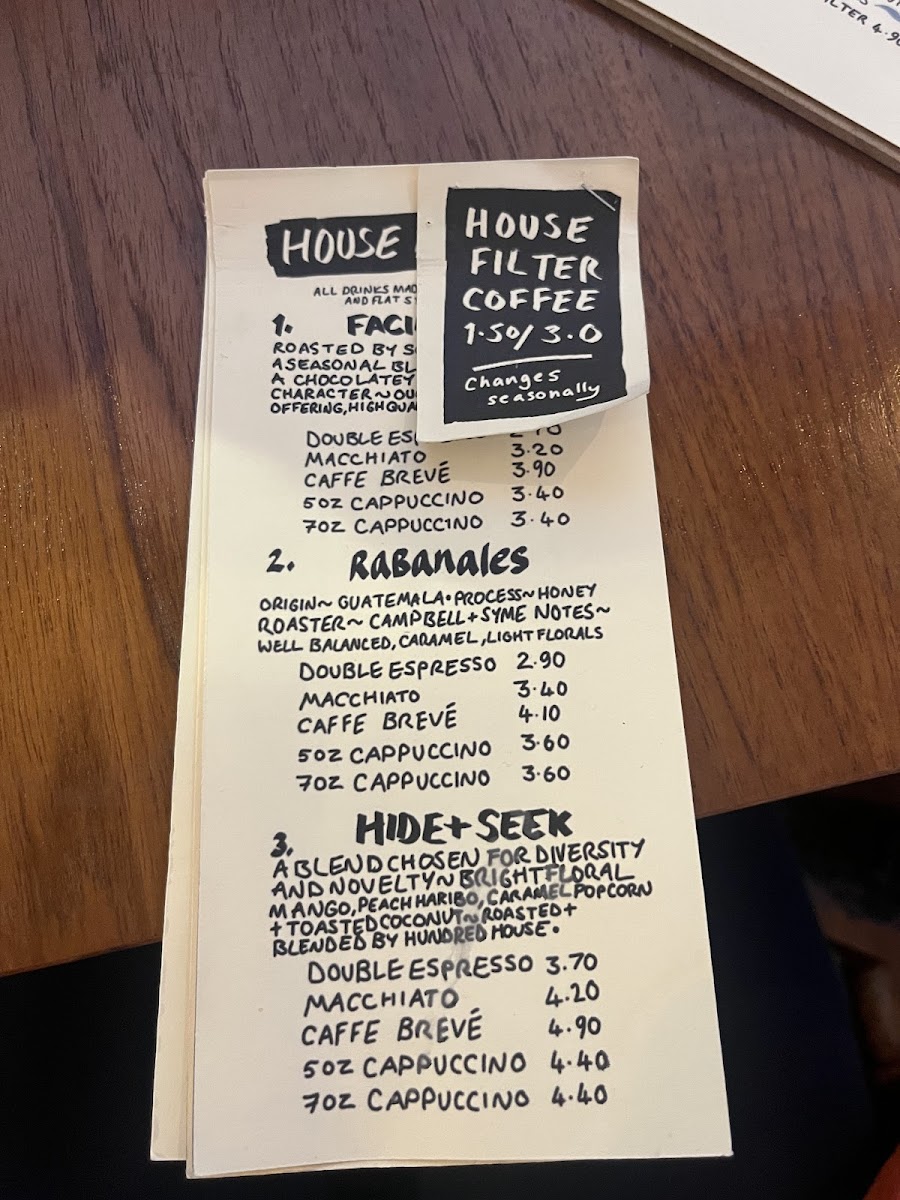 FILTER 4.90
HOUSE
HOUSE
FILTER
COFFEE
1.50/3.0
Changes
seasonally
ALL DRINKS
AND FLAT
1.
ROASTED BY
A SEASONAL
A CHOCOLATEY
CHARACTER~
OFFERING, HIGH
DOUBLE
MACCHIATO 3.20
CAFFE BREVÉ 3.90
5OZ CAPPUCCINO 3.40
7OZ CAPPUCCINO 3.40
2. RABANALES
ORIGIN~ GUATEMALA·PROCESS~HONEY
ROASTER~ CAMPBELL+SYME NOTES~
WELL BALANCED, CARAMEL, LIGHT FLORALS
DOUBLE ESPRESSO 2.90
MACCHIATO 3.40
CAFFE BREVÉ 4.10
5OZ CAPPUCCINO 3.60
7OZ CAPPUCCINO 3.60
3. HIDE+SEEK
A BLEND CHOSEN FOR DIVERSITY
AND NOVELTY~BRIGHT FLORAL
MANGO, PEACH HARIBO, CARAMEL POPCORN
+ TOASTED COCONUT~ ROASTED+
BLENDED BY HUNDRED HOUSE.
DOUBLE ESPRESSO 3.70
MACCHIATO 4.20
CAFFE BREVÉ 4.90
5OZ CAPPUCCINO 4.40
7OZ CAPPUCCINO 4.40